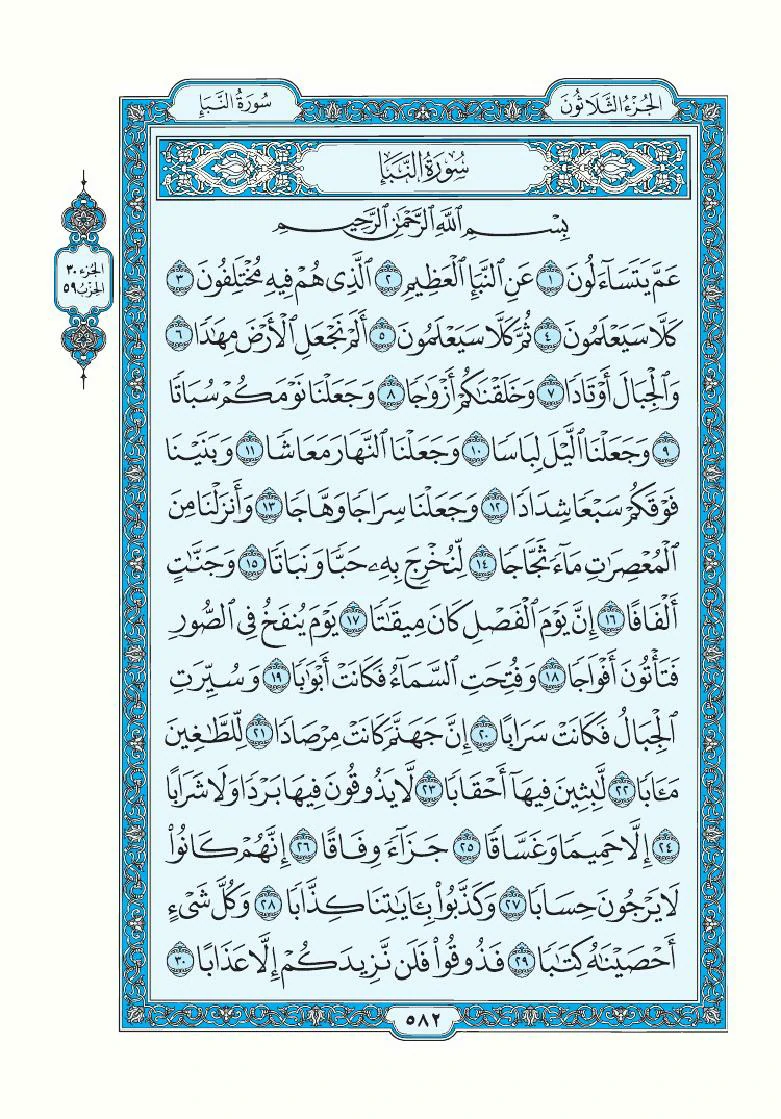 الجُزْءُ الثَّلَاثُونَ
سُورَةُ النَّبَإِ
سُورَةُ النَّبَإِ
بِسْمِ ٱللَّهِ ٱلرَّحْمَٰنِ ٱلرَّحِيمِ
عَمَّ يَتَسَآءَلُونَ ١ عَنِ ٱلنَّبَإِ ٱلْعَظِيمِ ٢ ٱلَّذِى هُمْ فِيهِ مُخْتَلِفُونَ ٣
كَلَّا سَيَعْلَمُونَ ٤ ثُمَّ كَلَّا سَيَعْلَمُونَ ٥ أَلَمْ نَجْعَلِ ٱلْأَرْضَ مِهَٰدًا ٦
وَٱلْجِبَالَ أَوْتَادًا ٧ وَخَلَقْنَٰكُمْ أَزْوَٰجًا ٨ وَجَعَلْنَا نَوْمَكُمْ سُبَاتًا
٩ وَجَعَلْنَا ٱلَّيْلَ لِبَاسًا ١٠ وَجَعَلْنَا ٱلنَّهَارَ مَعَاشًا ١١ وَبَنَيْنَا
فَوْقَكُمْ سَبْعًا شِدَادًا ١٢ وَجَعَلْنَا سِرَاجًا وَهَّاجًا ١٣ وَأَنزَلْنَا مِنَ
ٱلْمُعْصِرَٰتِ مَآءً ثَجَّاجًا ١٤ لِّنُخْرِجَ بِهِۦ حَبًّا وَنَبَاتًا ١٥ وَجَنَّٰتٍ
أَلْفَافًا ١٦ إِنَّ يَوْمَ ٱلْفَصْلِ كَانَ مِيقَٰتًا ١٧ يَوْمَ يُنفَخُ فِى ٱلصُّورِ
فَتَأْتُونَ أَفْوَاجًا ١٨ وَفُتِحَتِ ٱلسَّمَآءُ فَكَانَتْ أَبْوَٰبًا ١٩ وَسُيِّرَتِ
ٱلْجِبَالُ فَكَانَتْ سَرَابًا ٢٠ إِنَّ جَهَنَّمَ كَانَتْ مِرْصَادًا ٢١ لِّلطَّٰغِينَ
مَـَٔابًا ٢٢ لَّٰبِثِينَ فِيهَآ أَحْقَابًا ٢٣ لَّا يَذُوقُونَ فِيهَا بَرْدًا وَلَا شَرَابًا
٢٤ إِلَّا حَمِيمًا وَغَسَّاقًا ٢٥ جَزَآءً وِفَاقًا ٢٦ إِنَّهُمْ كَانُوا۟
لَا يَرْجُونَ حِسَابًا ٢٧ وَكَذَّبُوا۟ بِـَٔايَٰتِنَا كِذَّابًا ٢٨ وَكُلَّ شَىْءٍ
أَحْصَيْنَٰهُ كِتَٰبًا ٢٩ فَذُوقُوا۟ فَلَن نَّزِيدَكُمْ إِلَّا عَذَابًا ٣٠
الجُزء ٣٠
الحِزبُ ٥٩
٥٨٢